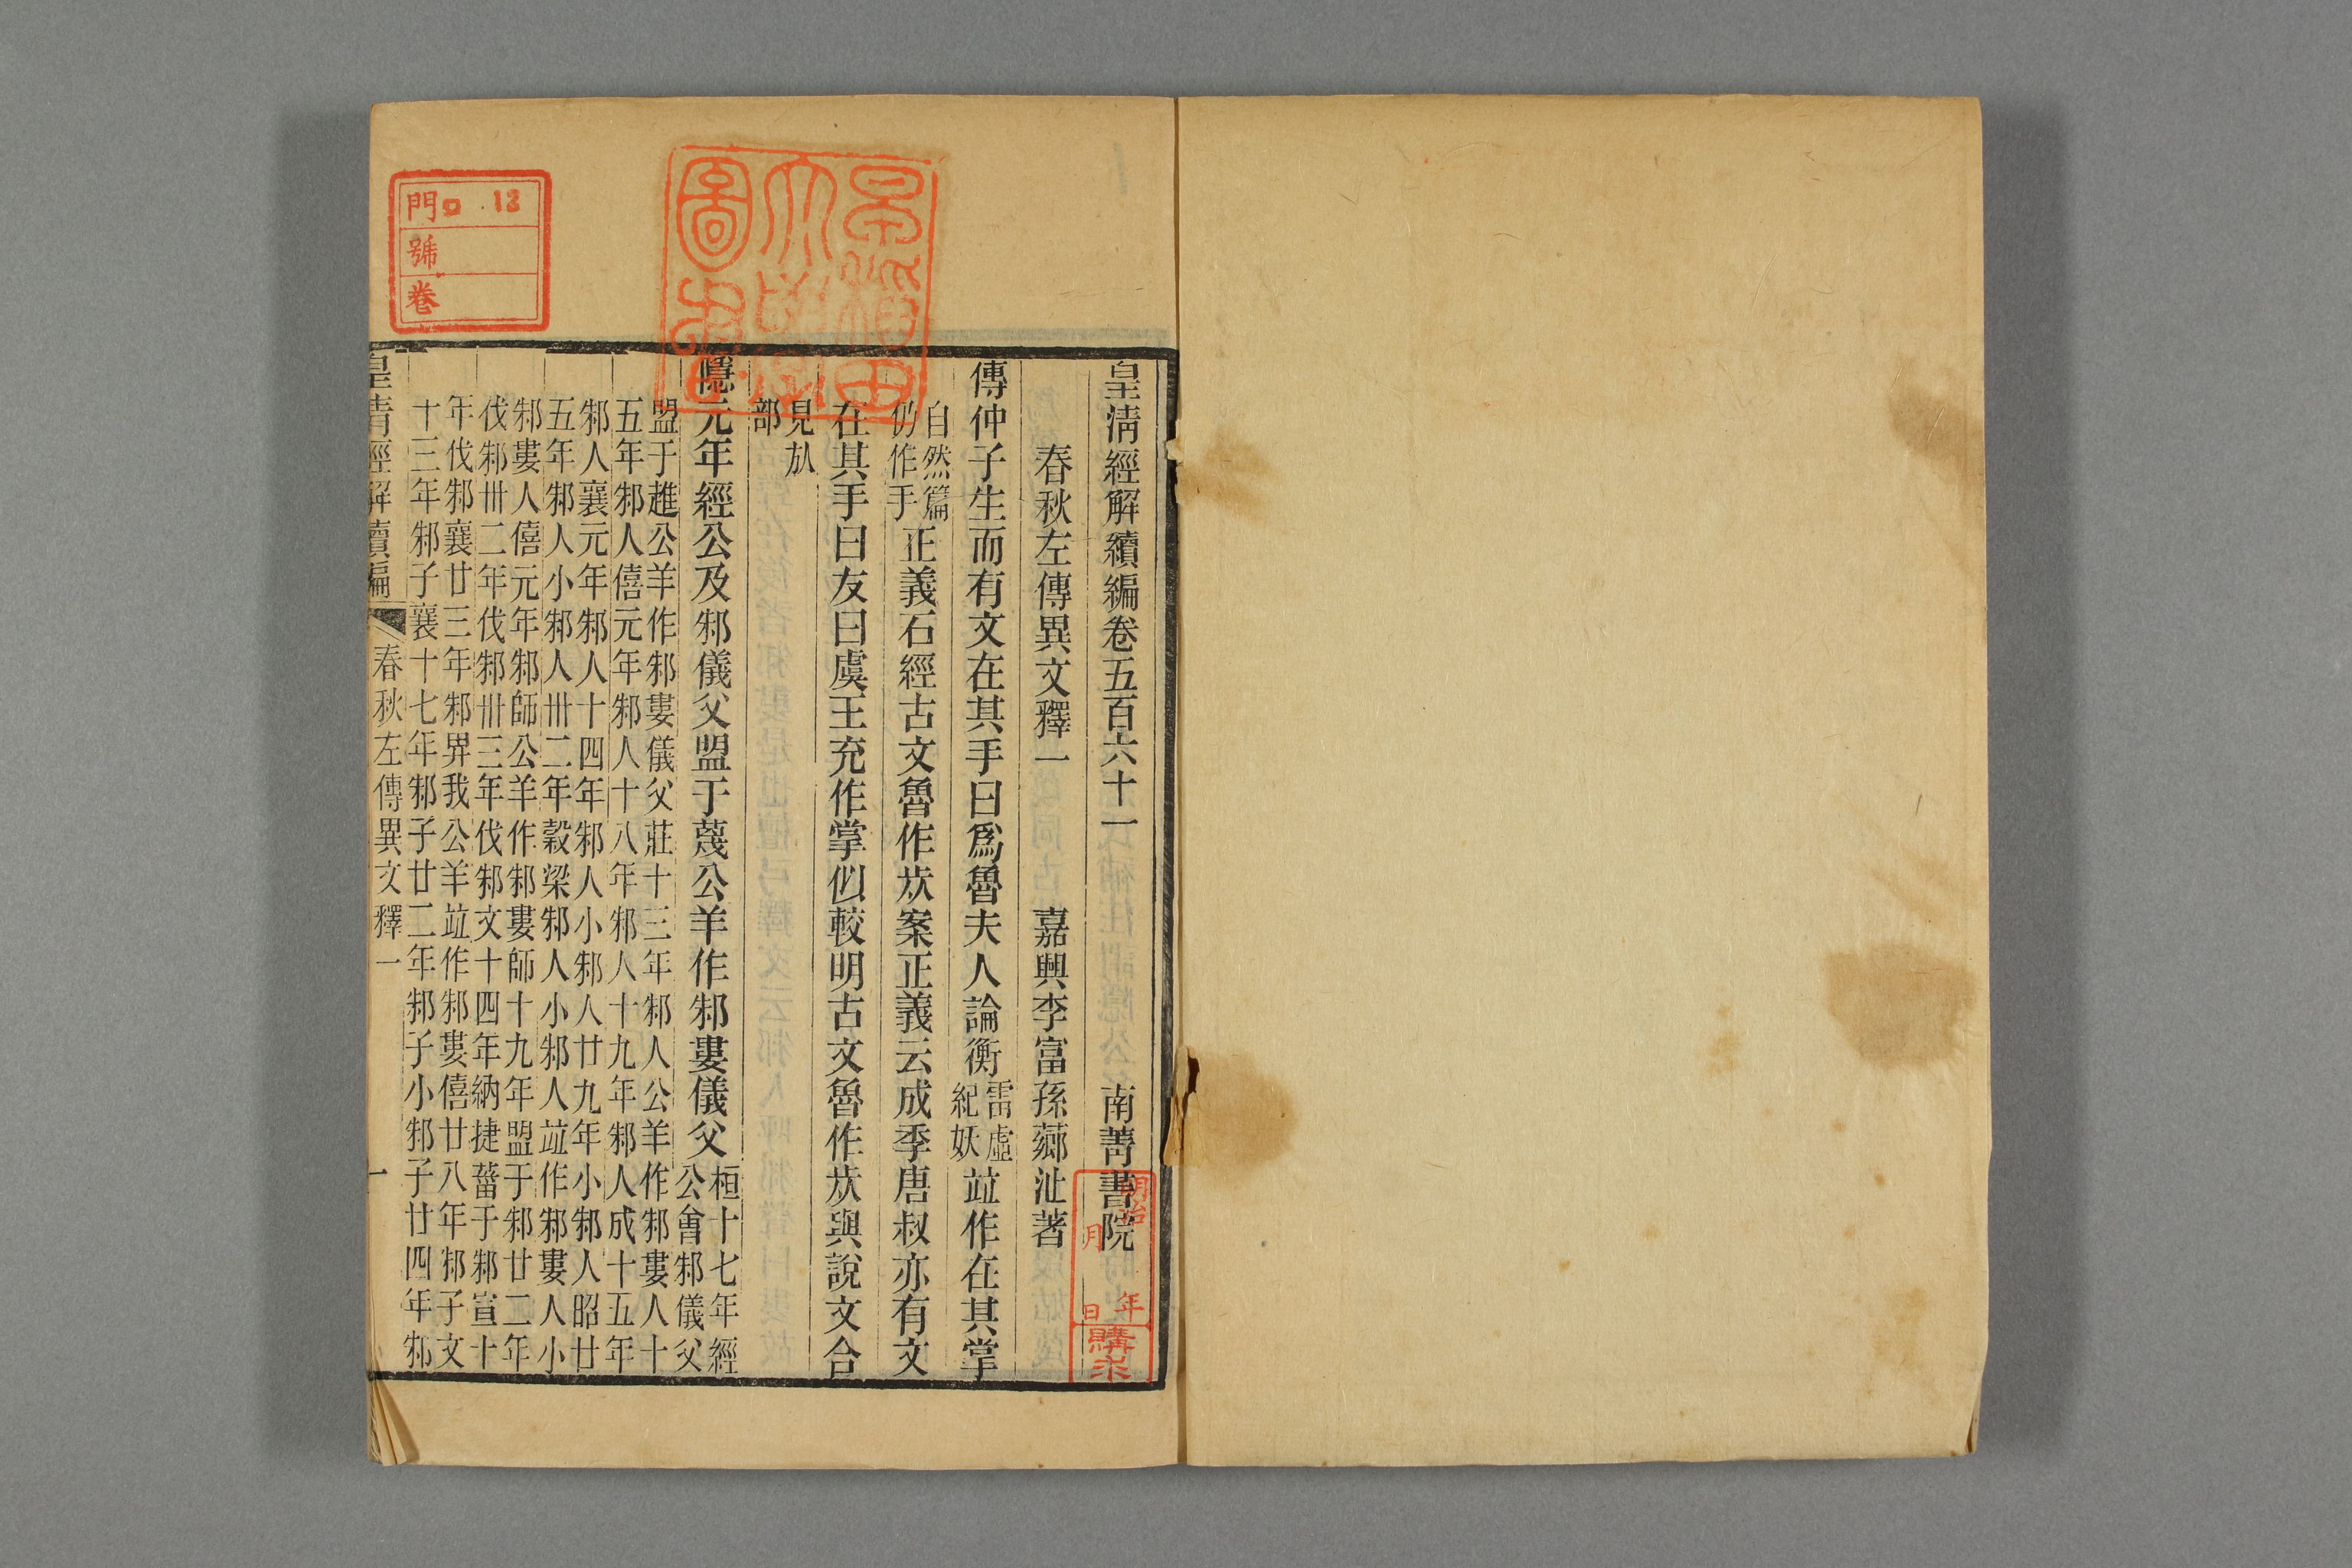 皇清經解續編卷五百六十一　南菁書院
春秋左傳異文釋一　嘉興李富孫薌沚著
傳仲子生而有文在其手曰爲魯夫人論衡雷虛紀妖竝作在其掌
自然篇仍作手正義石經古文魯作㫺案正義云成季唐叔亦有文
在其手曰友曰虞王充作掌似較明古文魯作㫺與說文合
見㫃部
隱元年經公及邾儀父盟于蔑公羊作邾婁儀父桓十七年經公會邾儀父
盟于趡公羊作邾婁儀父莊十三年邾人公羊作邾婁人十
五年邾人僖元年邾人十八年邾人十九年邾人成十五年
邾人襄元年邾人十四年邾人小邾人廿九年小邾人昭廿
五年邾人小邾人卅二年穀梁邾人小邾人竝作邾婁人小
邾婁人僖元年邾師公羊作邾婁師十九年盟于邾廿二年
伐邾卅二年伐邾卅三年伐邾文十四年納捷菑于邾宣十
年伐邾襄廿三年邾畀我公羊竝作邾婁僖廿八年邾子文
十三年邾子襄十七年邾子廿二年邾子小邾子廿四年邾
皇清經解續編　春秋左傳異文釋一　一
門 ロ 13
號
卷
早稻田大學圖書
明治 年 月 日 購求